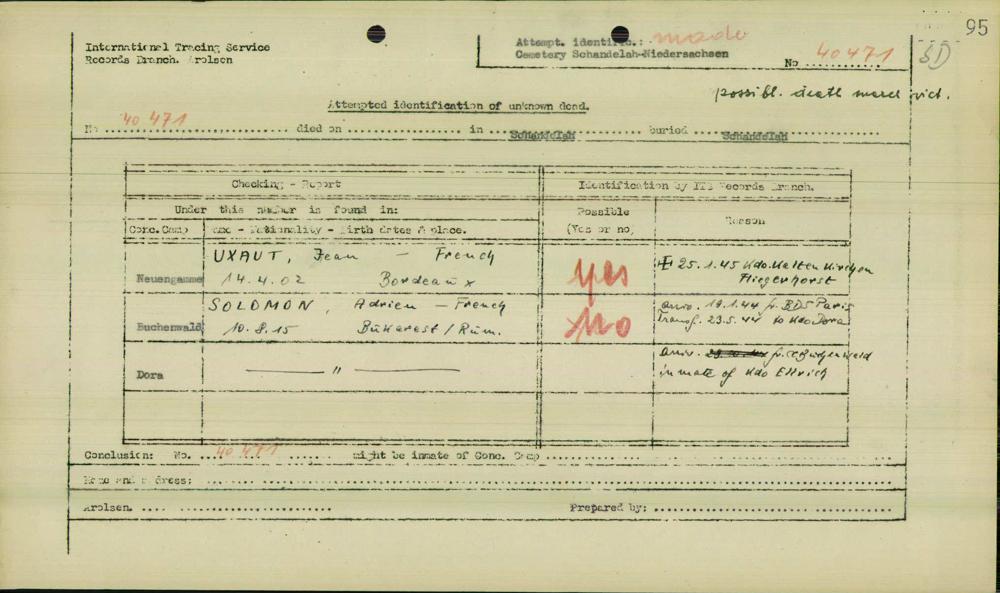 95
International Tracing Service
Records Branch. Arolsen
Attempt. identific.: made
Cemetery Schandelah-Niedersachsen
No 40471
SD
possibl. death march vict.
Attempted identification of unknown dead.
No 40 471 died on in Schandelah buried Schandelah
Checking - Report
Identification by ITS Records Branch.
Under this number is found in:
Possible
(Yes or no)
Reason
Conc.Camp
Name - Nationality - Birth dates & place.
Neuengamme
UXAUT, Jean - French
14.4.02 Bordeaux
yes
25.1.45 Kdo. Kaltenkirchen
Fliegerhorst
Buchenwald
SOLOMON, Adrien - French
10.8.15 Bukarest/Rum.
No
arriv. 19.1.44 fr. BDS Paris
Transf. 23.5.44 to Kdo Dora
Dora
"
arriv. fr. CC Buchenwald
inmate of Kdo Ellrich
Conclusion: No. 40 471 might be inmate of Conc. Camp
Name and address:
Arolsen. Prepared by: